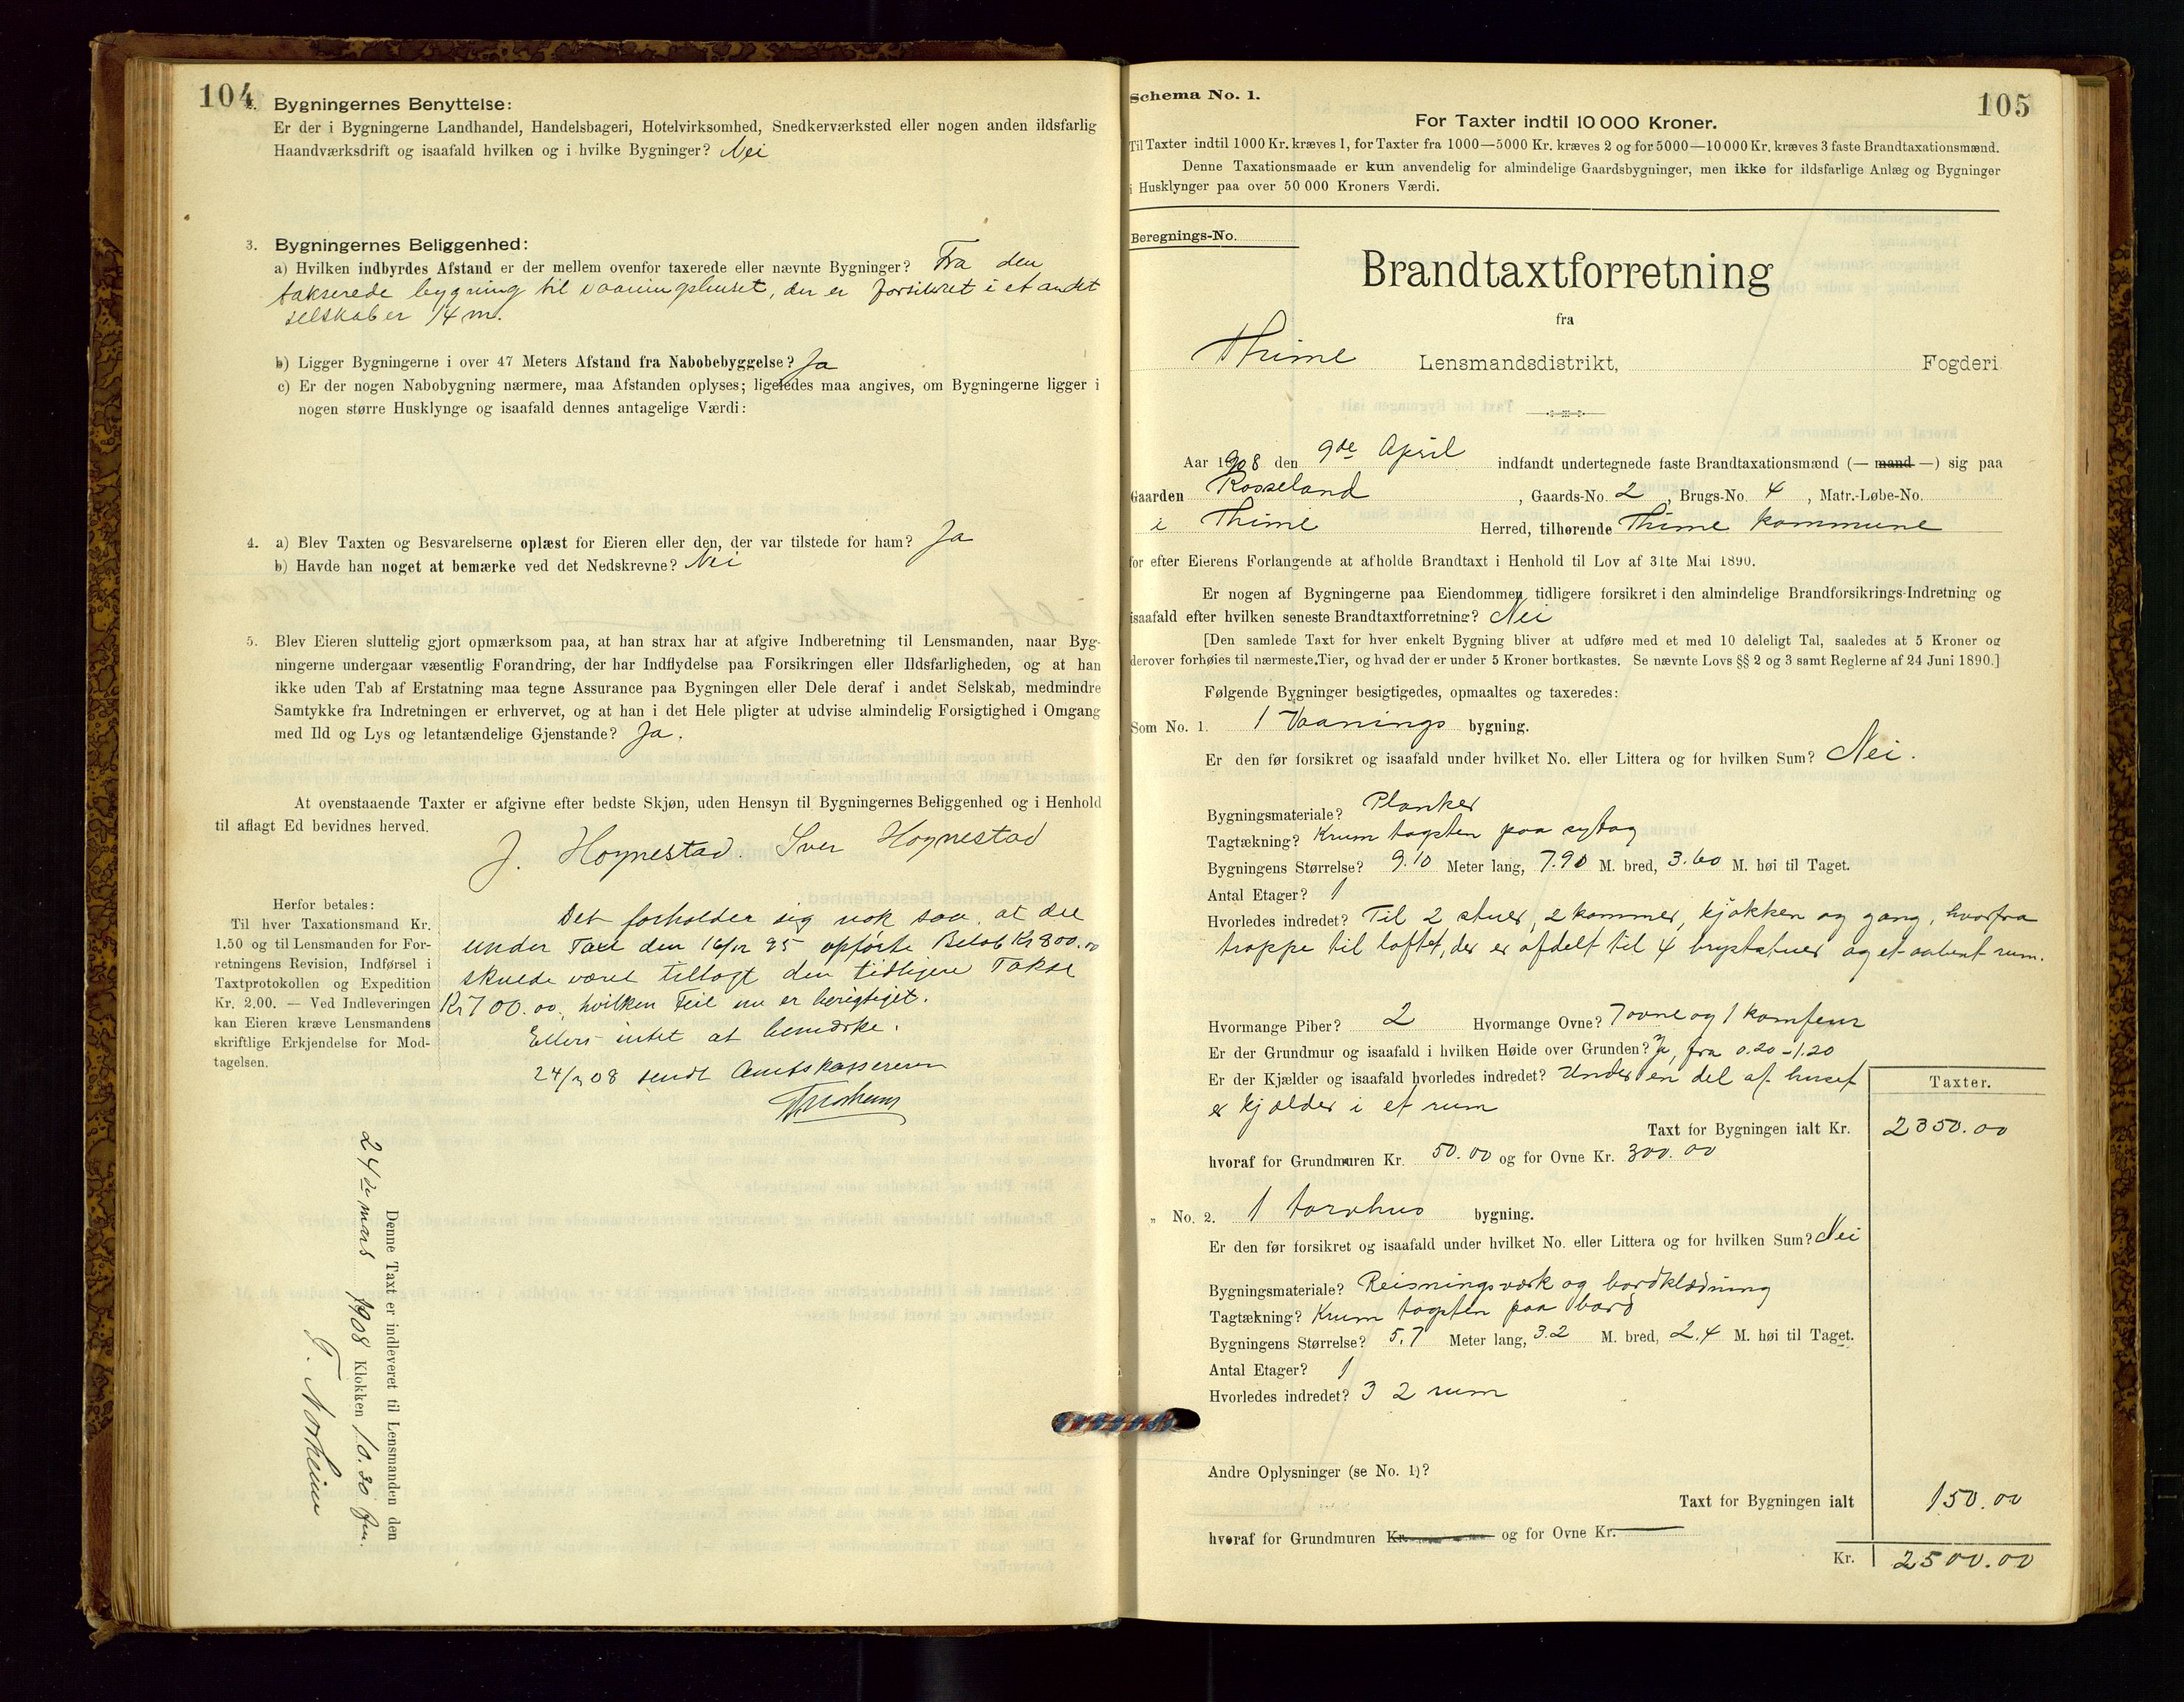 104
2. Bygningernes Benyttelse:
Er der i Bygningerne Landhandel, Handelsbageri, Hotelvirksomhed, Snedkerværksted eller nogen anden ildsfarlig
Haandværksdrift og isaafald hvilken og i hvilke Bygninger? Nei
3. Bygningernes Beliggenhed:
a) Hvilken indbyrdes Afstand er der mellem ovenfor taxerede eller nævnte Bygninger? Fra den
takserede bygning til vaaningshuset, der er forsikret i et andet
selskab er 14 m.
b) Ligger Bygningerne i over 47 Meters Afstand fra Nabobebyggelse? Ja
c) Er der nogen Nabobygning nærmere, maa Afstanden oplyses; ligeledes maa angives, om Bygningerne ligger i
nogen større Husklynge og isaafald dennes antagelige Værdi:
4. a) Blev Taxten og Besvarelserne oplæst for Eieren eller den, der var tilstede for ham? Ja
b) Havde han noget at bemærke ved det Nedskrevne? Nei
5. Blev Eieren sluttelig gjort opmærksom paa, at han strax har at afgive Indberetning til Lensmanden, naar Byg-
ningerne undergaar væsentlig Forandring, der har Indflydelse paa Forsikringen eller Ildsfarligheden, og at han
ikke uden Tab af Erstatning maa tegne Assurance paa Bygningen eller Dele deraf i andet Selskab, medmindre
Samtykke fra Indretningen er erhvervet, og at han i det Hele pligter at udvise almindelig Forsigtighed i Omgang
med Ild og Lys og letantændelige Gjenstande? Ja.
At ovenstaaende Taxter er afgivne efter bedste Skjøn, uden Hensyn til Bygningernes Beliggenhed og i Henhold
til aflagt Ed bevidnes herved.
J. Hognestad. Iver Hognestad
Herfor betales:
Til hver Taxationsmand Kr.
1.50 og til Lensmanden for For-
retningens Revision, Indførsel i
Taxtprotokollen og Expedition
Kr. 2.00. — Ved Indleveringen
kan Eieren kræve Lensmandens
skriftlige Erkjendelse for Mod-
tagelsen.
Det forholder sig nok saa, at det
under Taxt den 16/12 95 opførte Beløb Kr 800.00
skulde været tillagt den tidligere Takst
Kr 700.00, hvilken Feil nu er berigtiget.
Ellers intet at bemærke.
24/3 08 sendt Amtskassereren
Denne Taxt er indleveret til Lensmanden den
24de mars 1908 Klokken 10.30 fm.
T. Norheim
Schema No. 1.
105
For Taxter indtil 10 000 Kroner.
Til Taxter indtil 1000 Kr. kræves 1, for Taxter fra 1000—5000 Kr. kræves 2 og for 5000—10 000 Kr. kræves 3 faste Brandtaxationsmænd.
Denne Taxationsmaade er kun anvendelig for almindelige Gaardsbygninger, men ikke for ildsfarlige Anlæg og Bygninger
i Husklynger paa over 50 000 Kroners Værdi.
Beregnings-No.
Brandtaxtforretning
fra
Thime Lensmandsdistrikt, Fogderi
Aar 1908 den 9de April indfandt undertegnede faste Brandtaxationsmænd (— mand —) sig paa
Gaarden Rosseland, Gaards-No. 2, Brugs-No. 4, Matr.-Løbe-No.
i Thime Herred, tilhørende Thime kommune
for efter Eierens Forlangende at afholde Brandtaxt i Henhold til Lov af 31te Mai 1890.
Er nogen af Bygningerne paa Eiendommen tidligere forsikret i den almindelige Brandforsikrings-Indretning og
isaafald efter hvilken seneste Brandtaxtforretning? Nei
[Den samlede Taxt for hver enkelt Bygning bliver at udføre med et med 10 deleligt Tal, saaledes at 5 Kroner og
derover forhøies til nærmeste Tier, og hvad der er under 5 Kroner bortkastes. Se nævnte Lovs §§ 2 og 3 samt Reglerne af 24 Juni 1890.]
Følgende Bygninger besigtigedes, opmaaltes og taxeredes:
Som No. 1. 1 Vaanings bygning.
Er den før forsikret og isaafald under hvilket No. eller Littera og for hvilken Sum? Nei.
Bygningsmateriale? Planker
Tagtækning? Krum tagsten paa sutag
Bygningens Størrelse? 9.10 Meter lang, 7.90 M. bred, 3.60 M. høi til Taget.
Antal Etager? 1
Hvorledes indredet? Til 2 stuer, 2 kammer, kjøkken og gang, hvorfra
trappe til loftet, der er afdelt til 4 krypstuer og et aabent rum.
Hvormange Piber? 2 Hvormange Ovne? 7 ovne og 1 komfeur
Er der Grundmur og isaafald i hvilken Høide over Grunden? Ja, fra 0.20 - 1.20
Er der Kjælder og isaafald hvorledes indredet? Under en del af huset
er kjælder i et rum
Taxter.
Taxt for Bygningen ialt Kr. 2350.00
hvoraf for Grundmuren Kr. 50.00 og for Ovne Kr. 300.00
„ No. 2. 1 torvhus bygning.
Er den før forsikret og isaafald under hvilket No. eller Littera og for hvilken Sum? Nei
Bygningsmateriale? Reisningsværk og bordklædning
Tagtækning? Krum tagsten paa bord
Bygningens Størrelse? 5.7 Meter lang, 3.2 M. bred, 2.4 M. høi til Taget.
Antal Etager? 1
Hvorledes indredet? 3 2 rum
Andre Oplysninger (se No. 1)?
Taxt for Bygningen ialt 150.00
hvoraf for Grundmuren Kr. og for Ovne Kr.
Kr. 2500.00